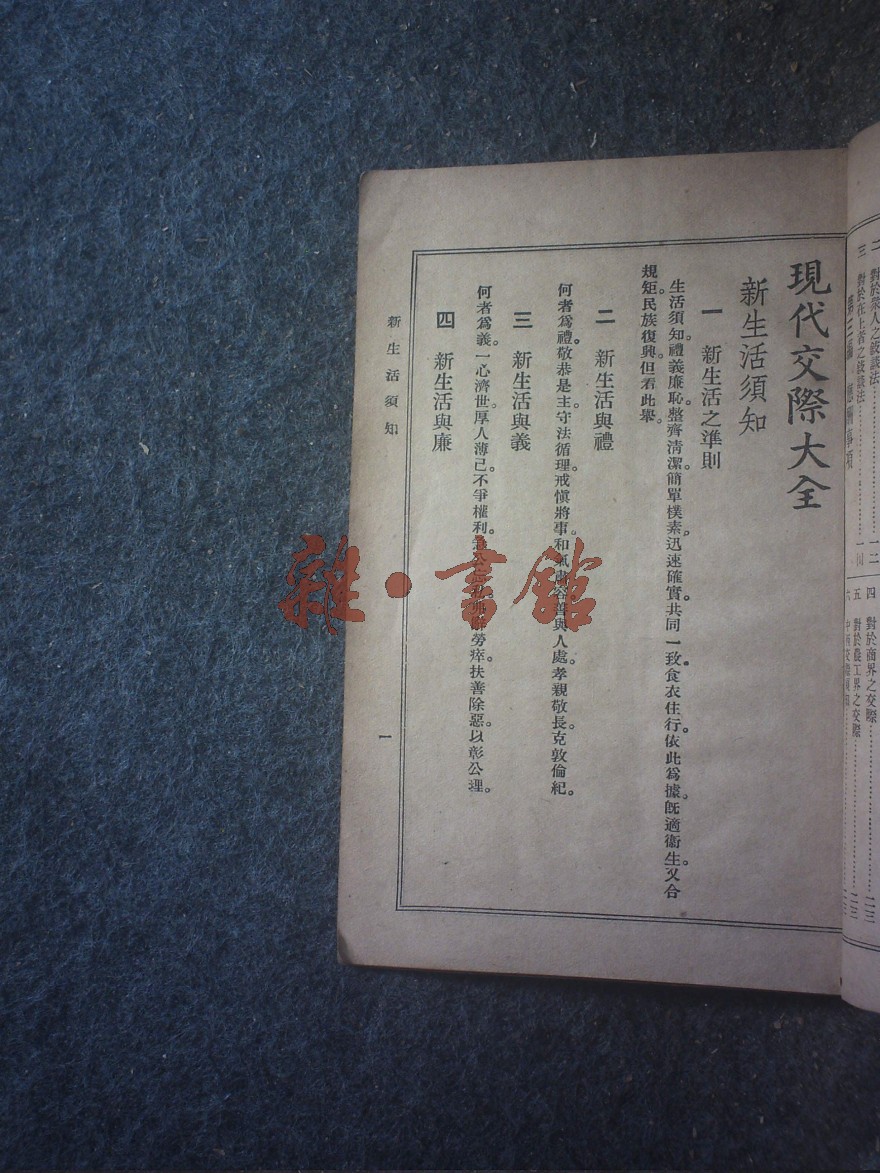 二 對於衆人之談話法……一二
三 對於在上者之談話法……一
四 對於商界之交際……一三
五 對於農工界之交際……一三
現代交際大全
新生活須知
一 新生活之準則
生活須知。禮義廉恥。整齊淸潔。簡單樸素。迅速確實。共同一致。食衣住行。依此爲據。旣適衞生。又合
規矩。民族復興。但看此舉。
二 新生活與禮
何者爲禮。敬恭是主。守法循理。戒愼將事。和氣容善與人處。孝親敬長。克敦倫紀。
三 新生活與義
何者爲義。一心濟世。厚人薄己。不爭權利。勞瘁。扶善除惡。以彰公理。
四 新生活與廉
新生活須知
一
雜·書館